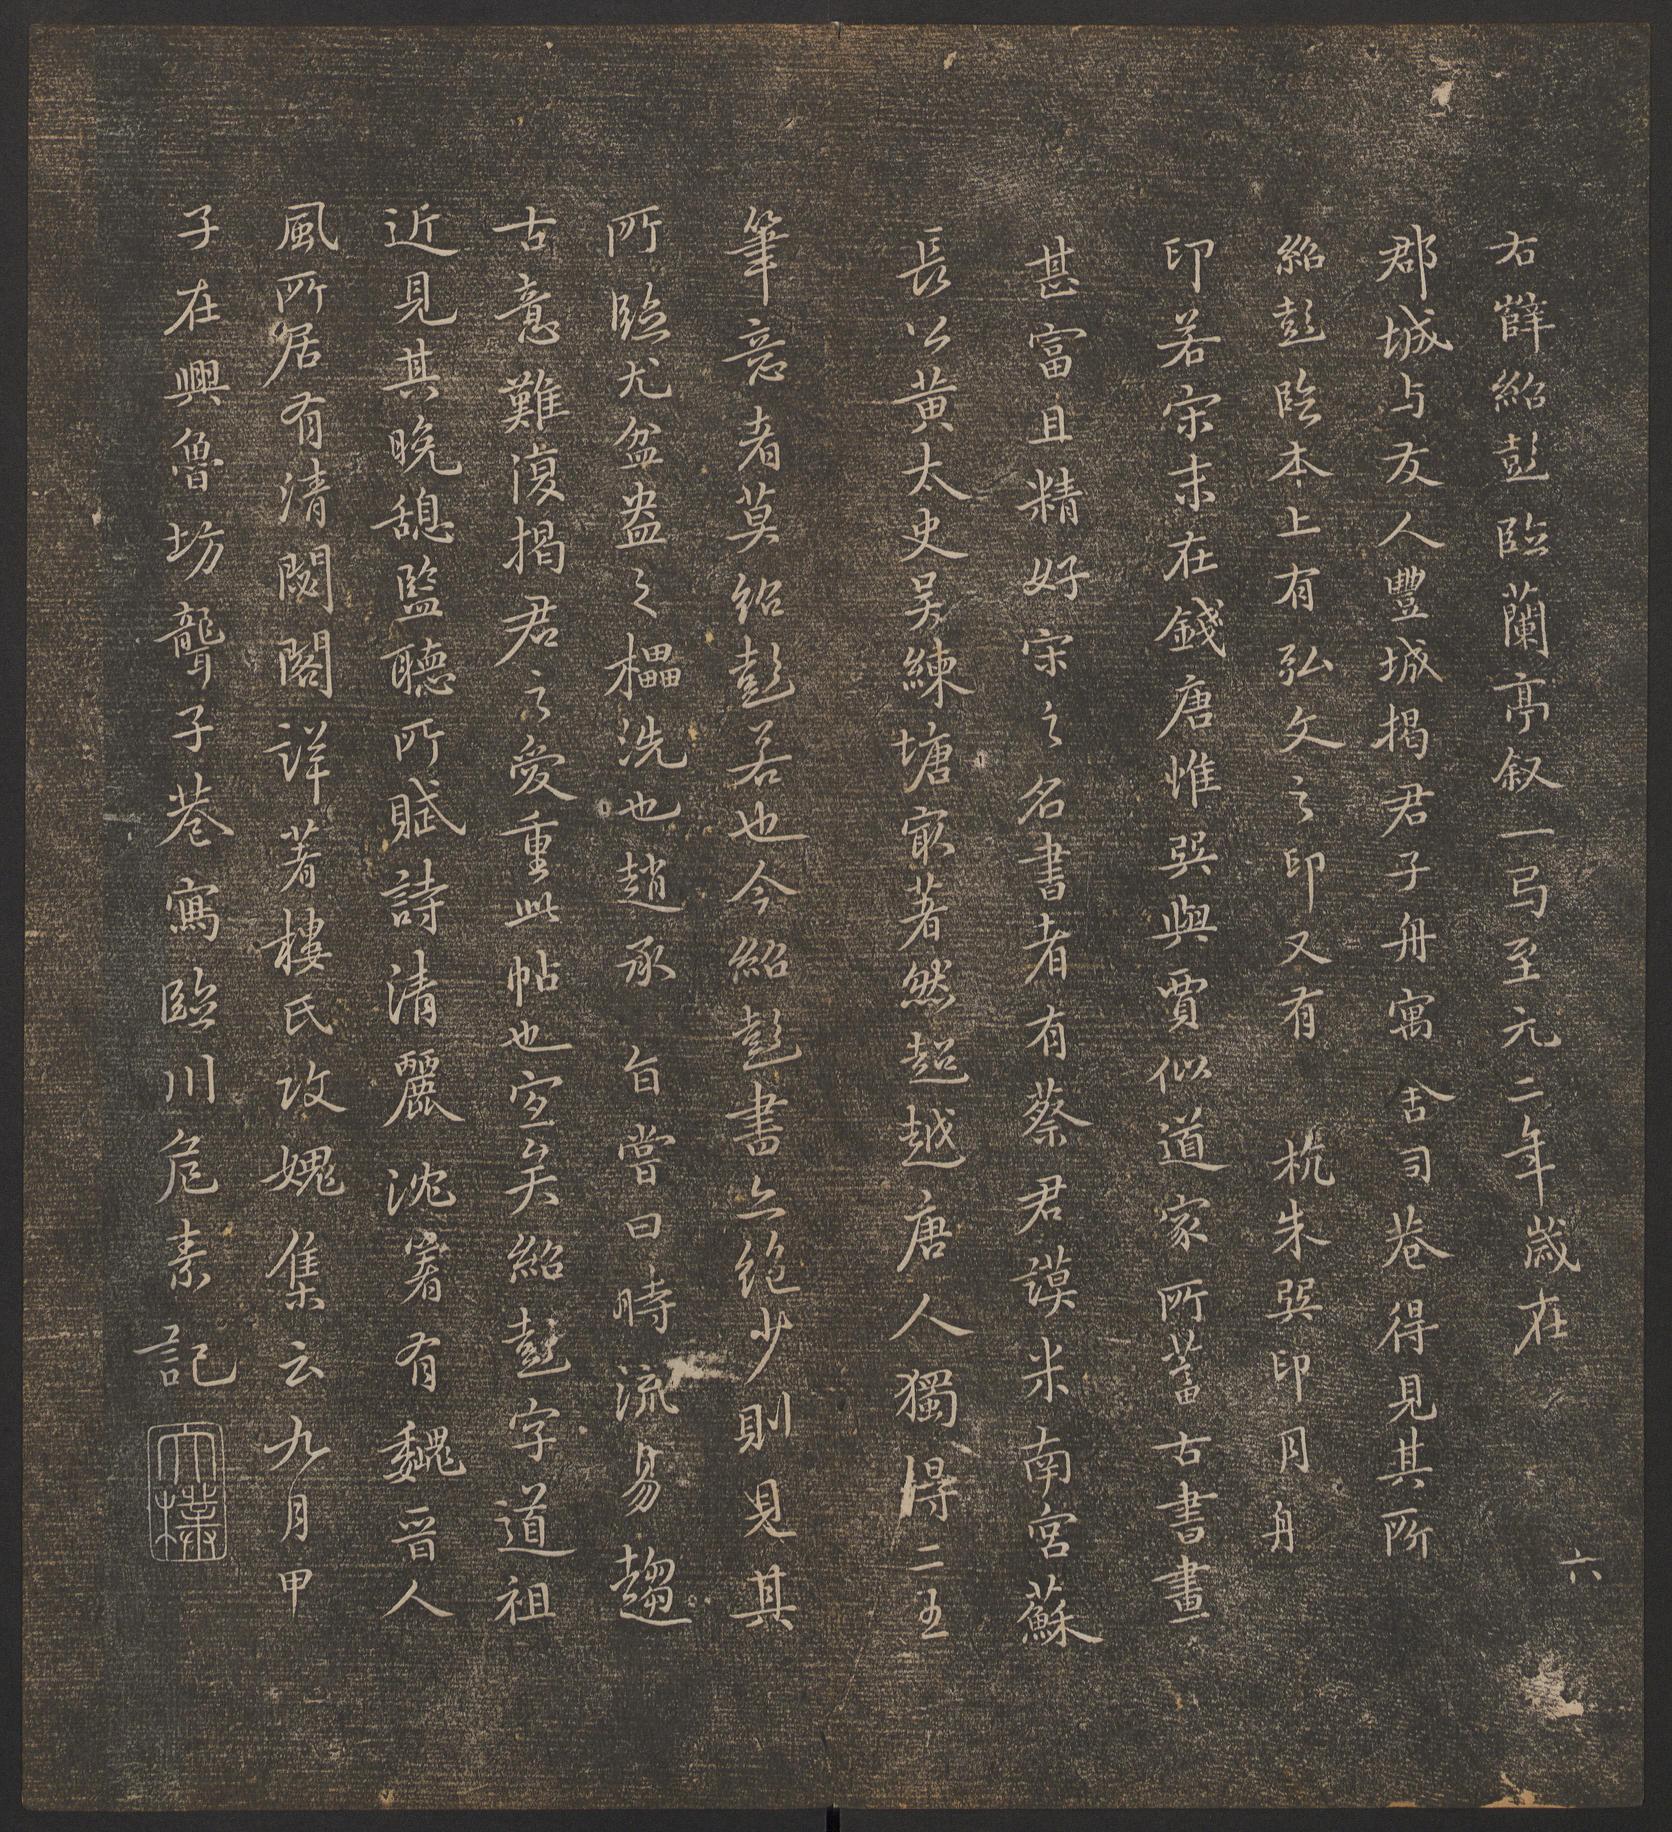 右薛紹彭臨蘭亭叙一弓至元二年歲在
六
郡城与友人豐城揭君子舟寓舍司巷得見其所
紹彭臨本上有弘文之印又有杭朱巽印月舟
印若宋末在錢唐惟巽與賈似道家所蓄古書畫
甚富且精好宋之名書者有蔡君謨米南宮蘇
長公黃太史吴練塘冣著然超越唐人獨得二王
筆意者莫紹彭若也今紹彭書亦絶少則見其
所臨尤盆盎之櫑洗也趙承旨嘗曰時流易趨
古意難復揭君之愛重此帖也宜矣紹彭字道祖
近見其晚憩監聽所賦詩清麗沈著有魏晋人
風所居有清閟閣詳著樓氏攻媿集云九月甲
子在興魯坊聾子巷寓臨川危素記
太樸